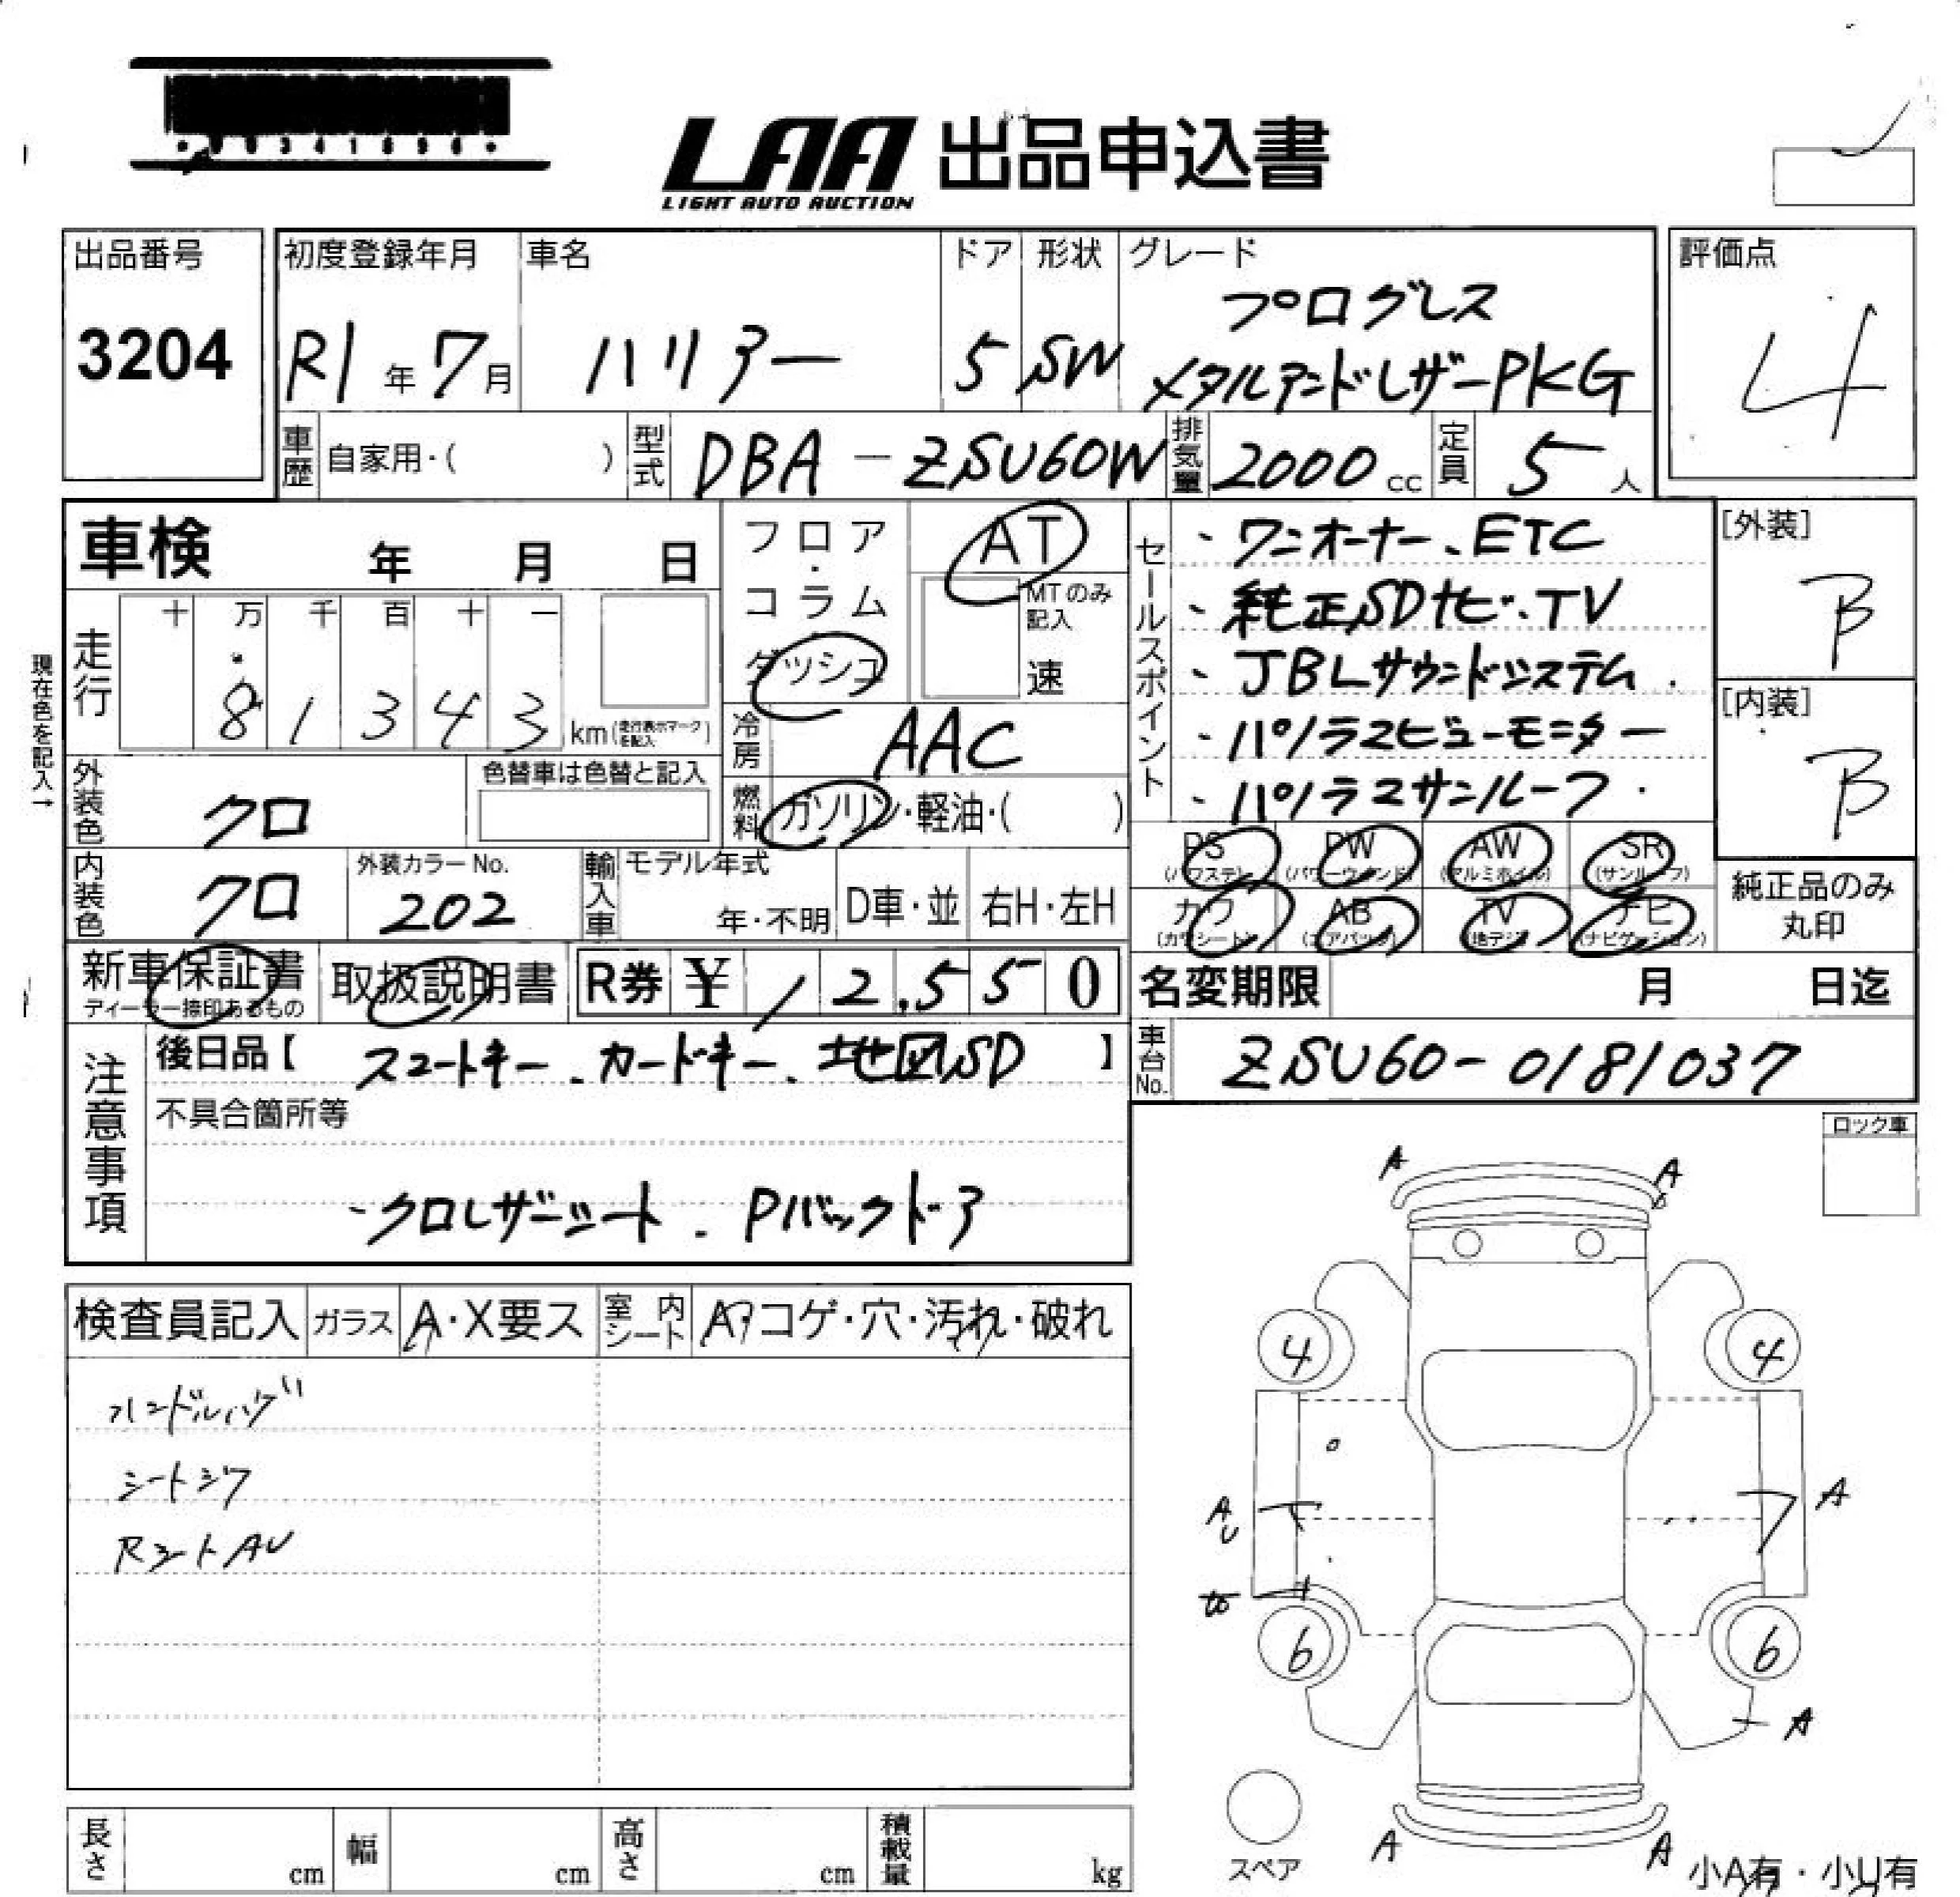 LAA 出品申込書
LIGHT AUTO AUCTION
出品番号
3204
初度登録年月
R1年7月
車名
ハリアー
ドア
5
形状
SW
グレード
プログレス
メタルアンドレザーPKG
評価点
4
車歴 自家用・( )
型式 DBA-ZSU60W
排気量 2000cc
定員 5人
車検 年 月 日
フロア・コラム・ダッシュ
AT
MTのみ記入
速
セールスポイント
・ワンオーナー、ETC
・純正SDナビ・TV
・JBLサウンドシステム
・パノラマビューモニター
・パノラマサンルーフ
[外装]
B
[内装]
B
現在色を記入→
走行
十 万 千 百 十 一
8 1 3 4 3 km(走行表示マークを記入)
冷房 AAC
外装色 クロ
色替車は色替と記入
燃料 ガソリン・軽油・( )
PS (パワステ)
PW (パワーウインド)
AW (アルミホイル)
SR (サンルーフ)
カワ (カワシート)
AB (エアバッグ)
TV (地デジ)
ナビ (ナビゲーション)
純正品のみ丸印
内装色 クロ
外装カラーNo.
202
輸入車
モデル年式
年・不明
D車・並
右H・左H
新車保証書
ディーラー捺印あるもの
取扱説明書
R券 ¥12,550
名変期限 月 日迄
注意事項
後日品【スマートキー、カードキー、地図SD】
車台No. ZSU60-0181037
不具合箇所等
・クロレザーシート、Pバックドア
ロック車
検査員記入
ガラス A・X要ス
室内シート A・コゲ・穴・汚れ・破れ
ハンドルハゲ
シートシワ
RシートAU
A A
4 4
AU A
6 6
A
A A
スペア
小A有・小U有
長さ cm
幅 cm
高さ cm
積載量 kg